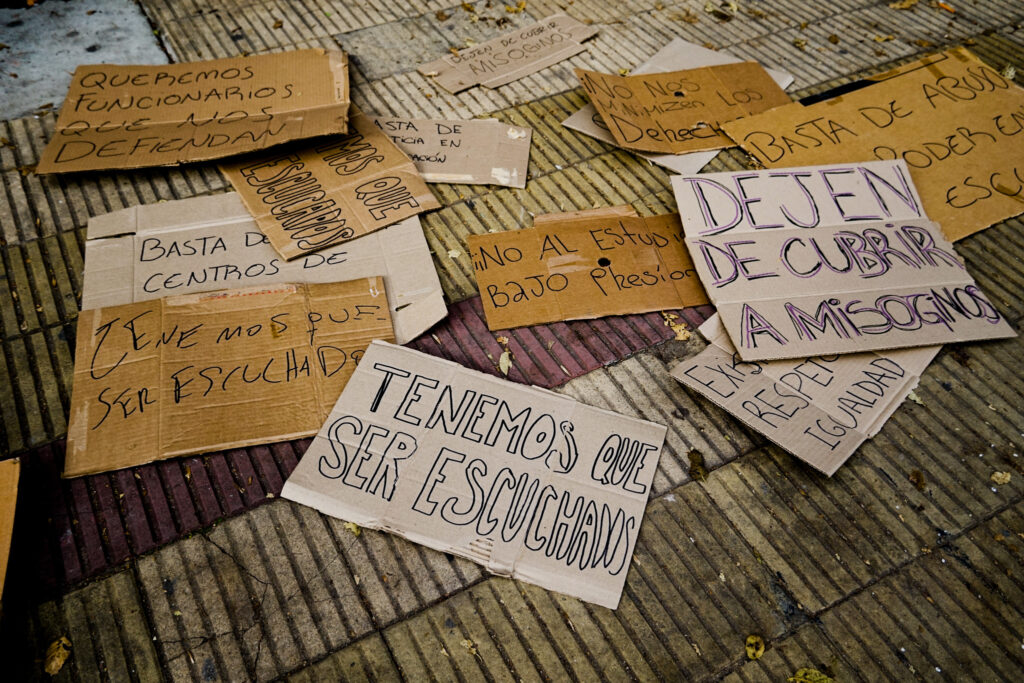 QUEREMOS
FUNCIONARIOS
QUE NOS
DEFIENDAN
DEJEN DE CUBRIR
MISOGINOS
NO NOS
MINIMIZEN LOS
BASTA DE ABUSO
PODER EN
ASTA DE
TICIA EN
ACIÓN
EMOS QUE
ESCUCHADXS
BASTA DE
CENTROS DE
¡¡NO AL ESTUD
BAJO PRESIÓN
DEJEN
DE CUBRIR
A MISOGINOS
TENEMOS QUE
SER ESCUCHAD
RESPE
IGUALDAD
TENEMOS QUE
SER ESCUCHADXS